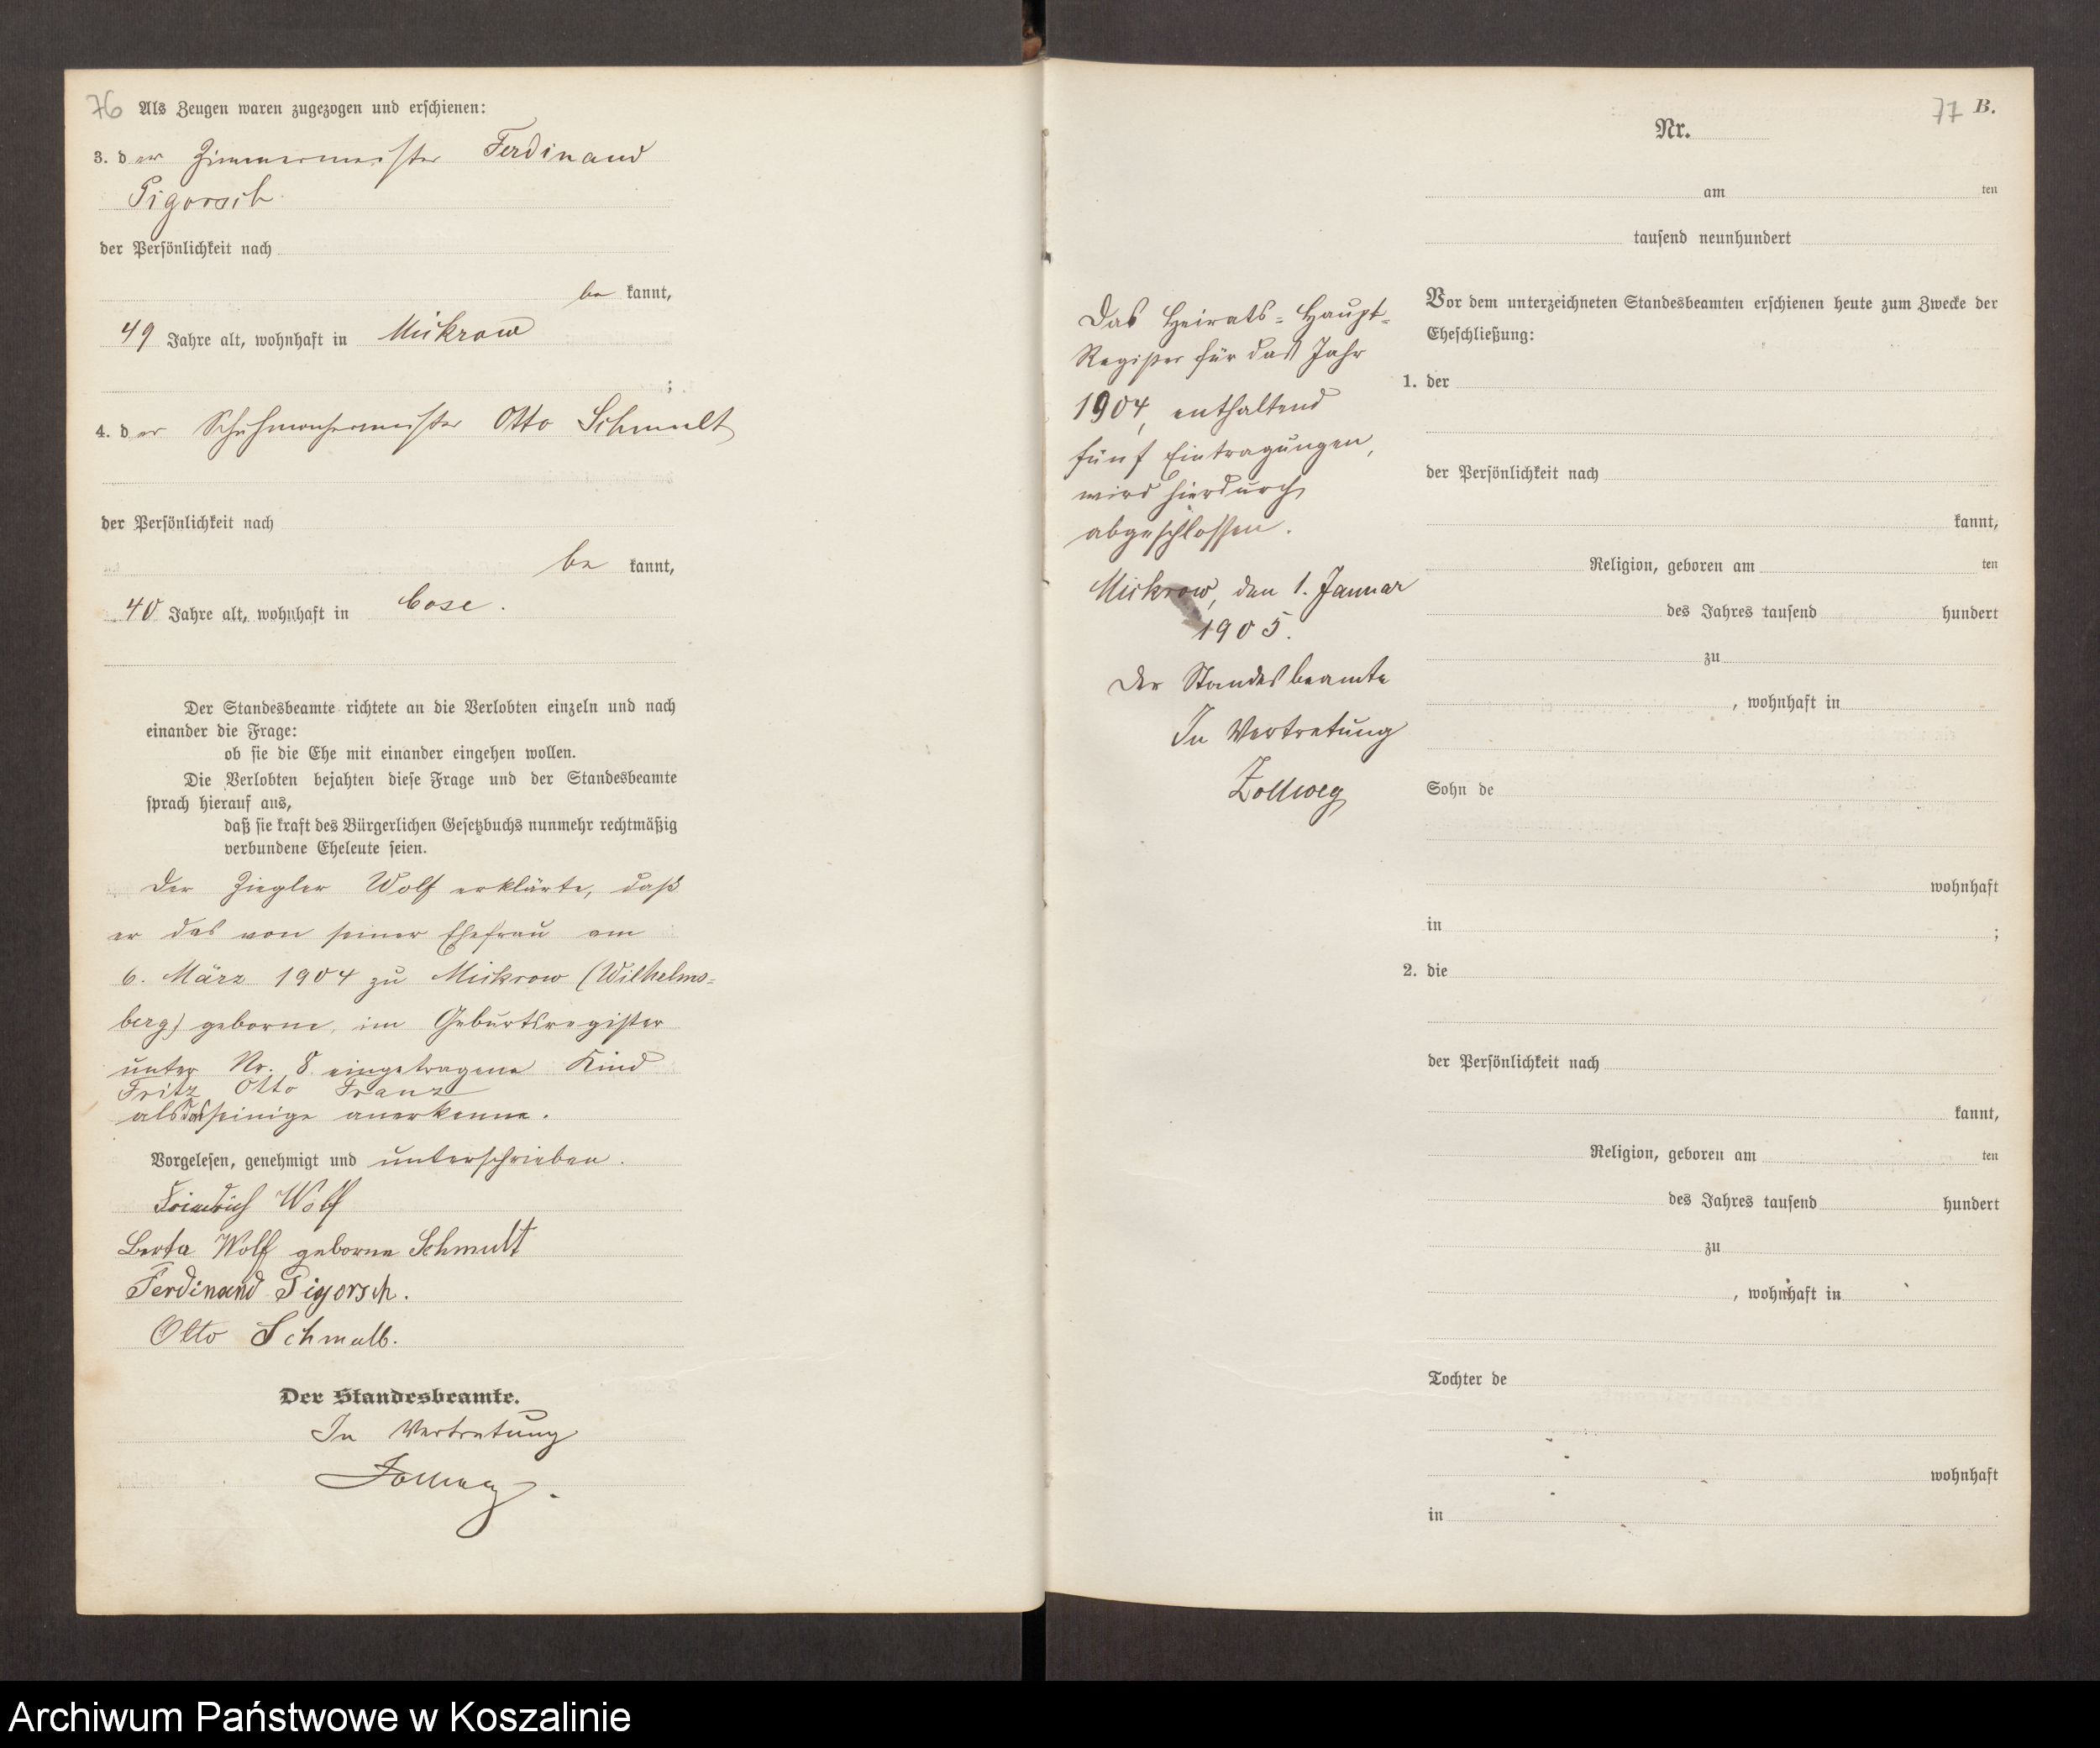 76 Als Zeugen waren zugezogen und erschienen:
3. der Zimmermeister Ferdinand
Pigorsch
der Persönlichkeit nach
be kannt,
49 Jahre alt, wohnhaft in Mickrow
;
4. der Schuhmachermeister Otto Schmult
der Persönlichkeit nach
be kannt,
40 Jahre alt, wohnhaft in Cose.
Der Standesbeamte richtete an die Verlobten einzeln und nach
einander die Frage:
ob sie die Ehe mit einander eingehen wollen.
Die Verlobten bejahten diese Frage und der Standesbeamte
sprach hierauf aus,
daß sie kraft des Bürgerlichen Gesetzbuchs nunmehr rechtmäßig
verbundene Eheleute seien.
Der Ziegler Wolf erklärte, daß
er das von seiner Ehefrau am
6. März 1904 zu Mickrow (Wilhelms-
berg) geborne, im Geburtsregister
unter Nr. 8 eingetragene Kind
Fritz Otto Franz
als das seinige anerkenne.
Vorgelesen, genehmigt und unterschrieben.
Friedrich Wolf
Berta Wolff geborne Schmult
Ferdinand Pigorsch.
Otto Schmult.
Der Standesbeamte.
In Vertretung
Zollweg.
77 B.
Nr.
am ten
tausend neunhundert
Vor dem unterzeichneten Standesbeamten erschienen heute zum Zwecke der
Eheschließung:
1. der
der Persönlichkeit nach
kannt,
Religion, geboren am ten
des Jahres tausend hundert
zu
, wohnhaft in
Sohn de
wohnhaft
in ;
2. die
der Persönlichkeit nach
kannt,
Religion, geboren am ten
des Jahres tausend hundert
zu
, wohnhaft in
Tochter de
wohnhaft
in
Das Heirats-Haupt-
Register für das Jahr
1904, enthaltend
fünf Eintragungen,
wird hierdurch
abgeschlossen.
Mickrow, den 1. Januar
1905.
Der Standesbeamte
In Vertretung
Zollweg
Archiwum Państwowe w Koszalinie